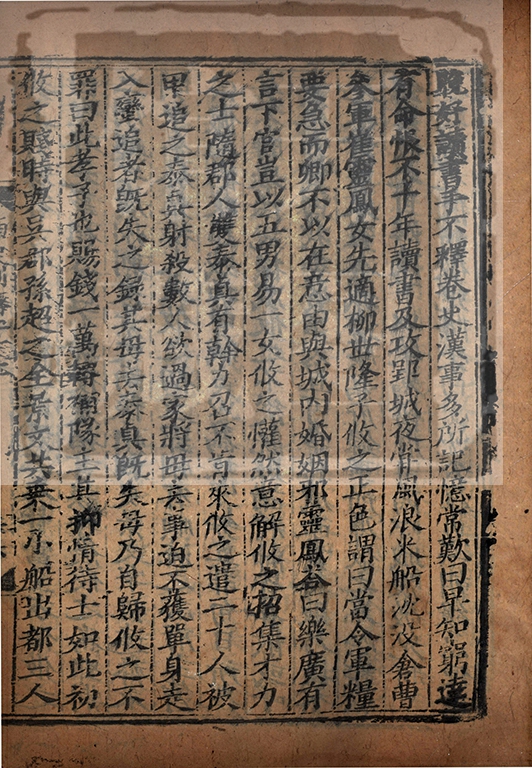 晚好讀書手不釋卷史漢事多所記憶常歎曰早知窮達
有命恨不十年讀書及攻郢城夜甞風浪米船沈没倉曹
參軍崔靈鳳女先適柳世隆子攸之正色謂曰當今軍糧
要急而卿不以在意由與城内婚姻邪靈鳳荅曰樂廣有
言下官豈以五男易一女攸之懽然意解攸之招集才力
之士隨郡人雙泰真有幹力召不肯來攸之遣二十人被
甲追之泰真射殺數人欲過家將母去事迫不獲單身走
入蠻追者旣失之錄其母去泰真旣失母乃自歸攸之不
罪曰此孝子也賜錢一萬轉補隊主其抑情待士如此初
攸之賤時與吳郡孫超之全景文共乘一小船出都三人